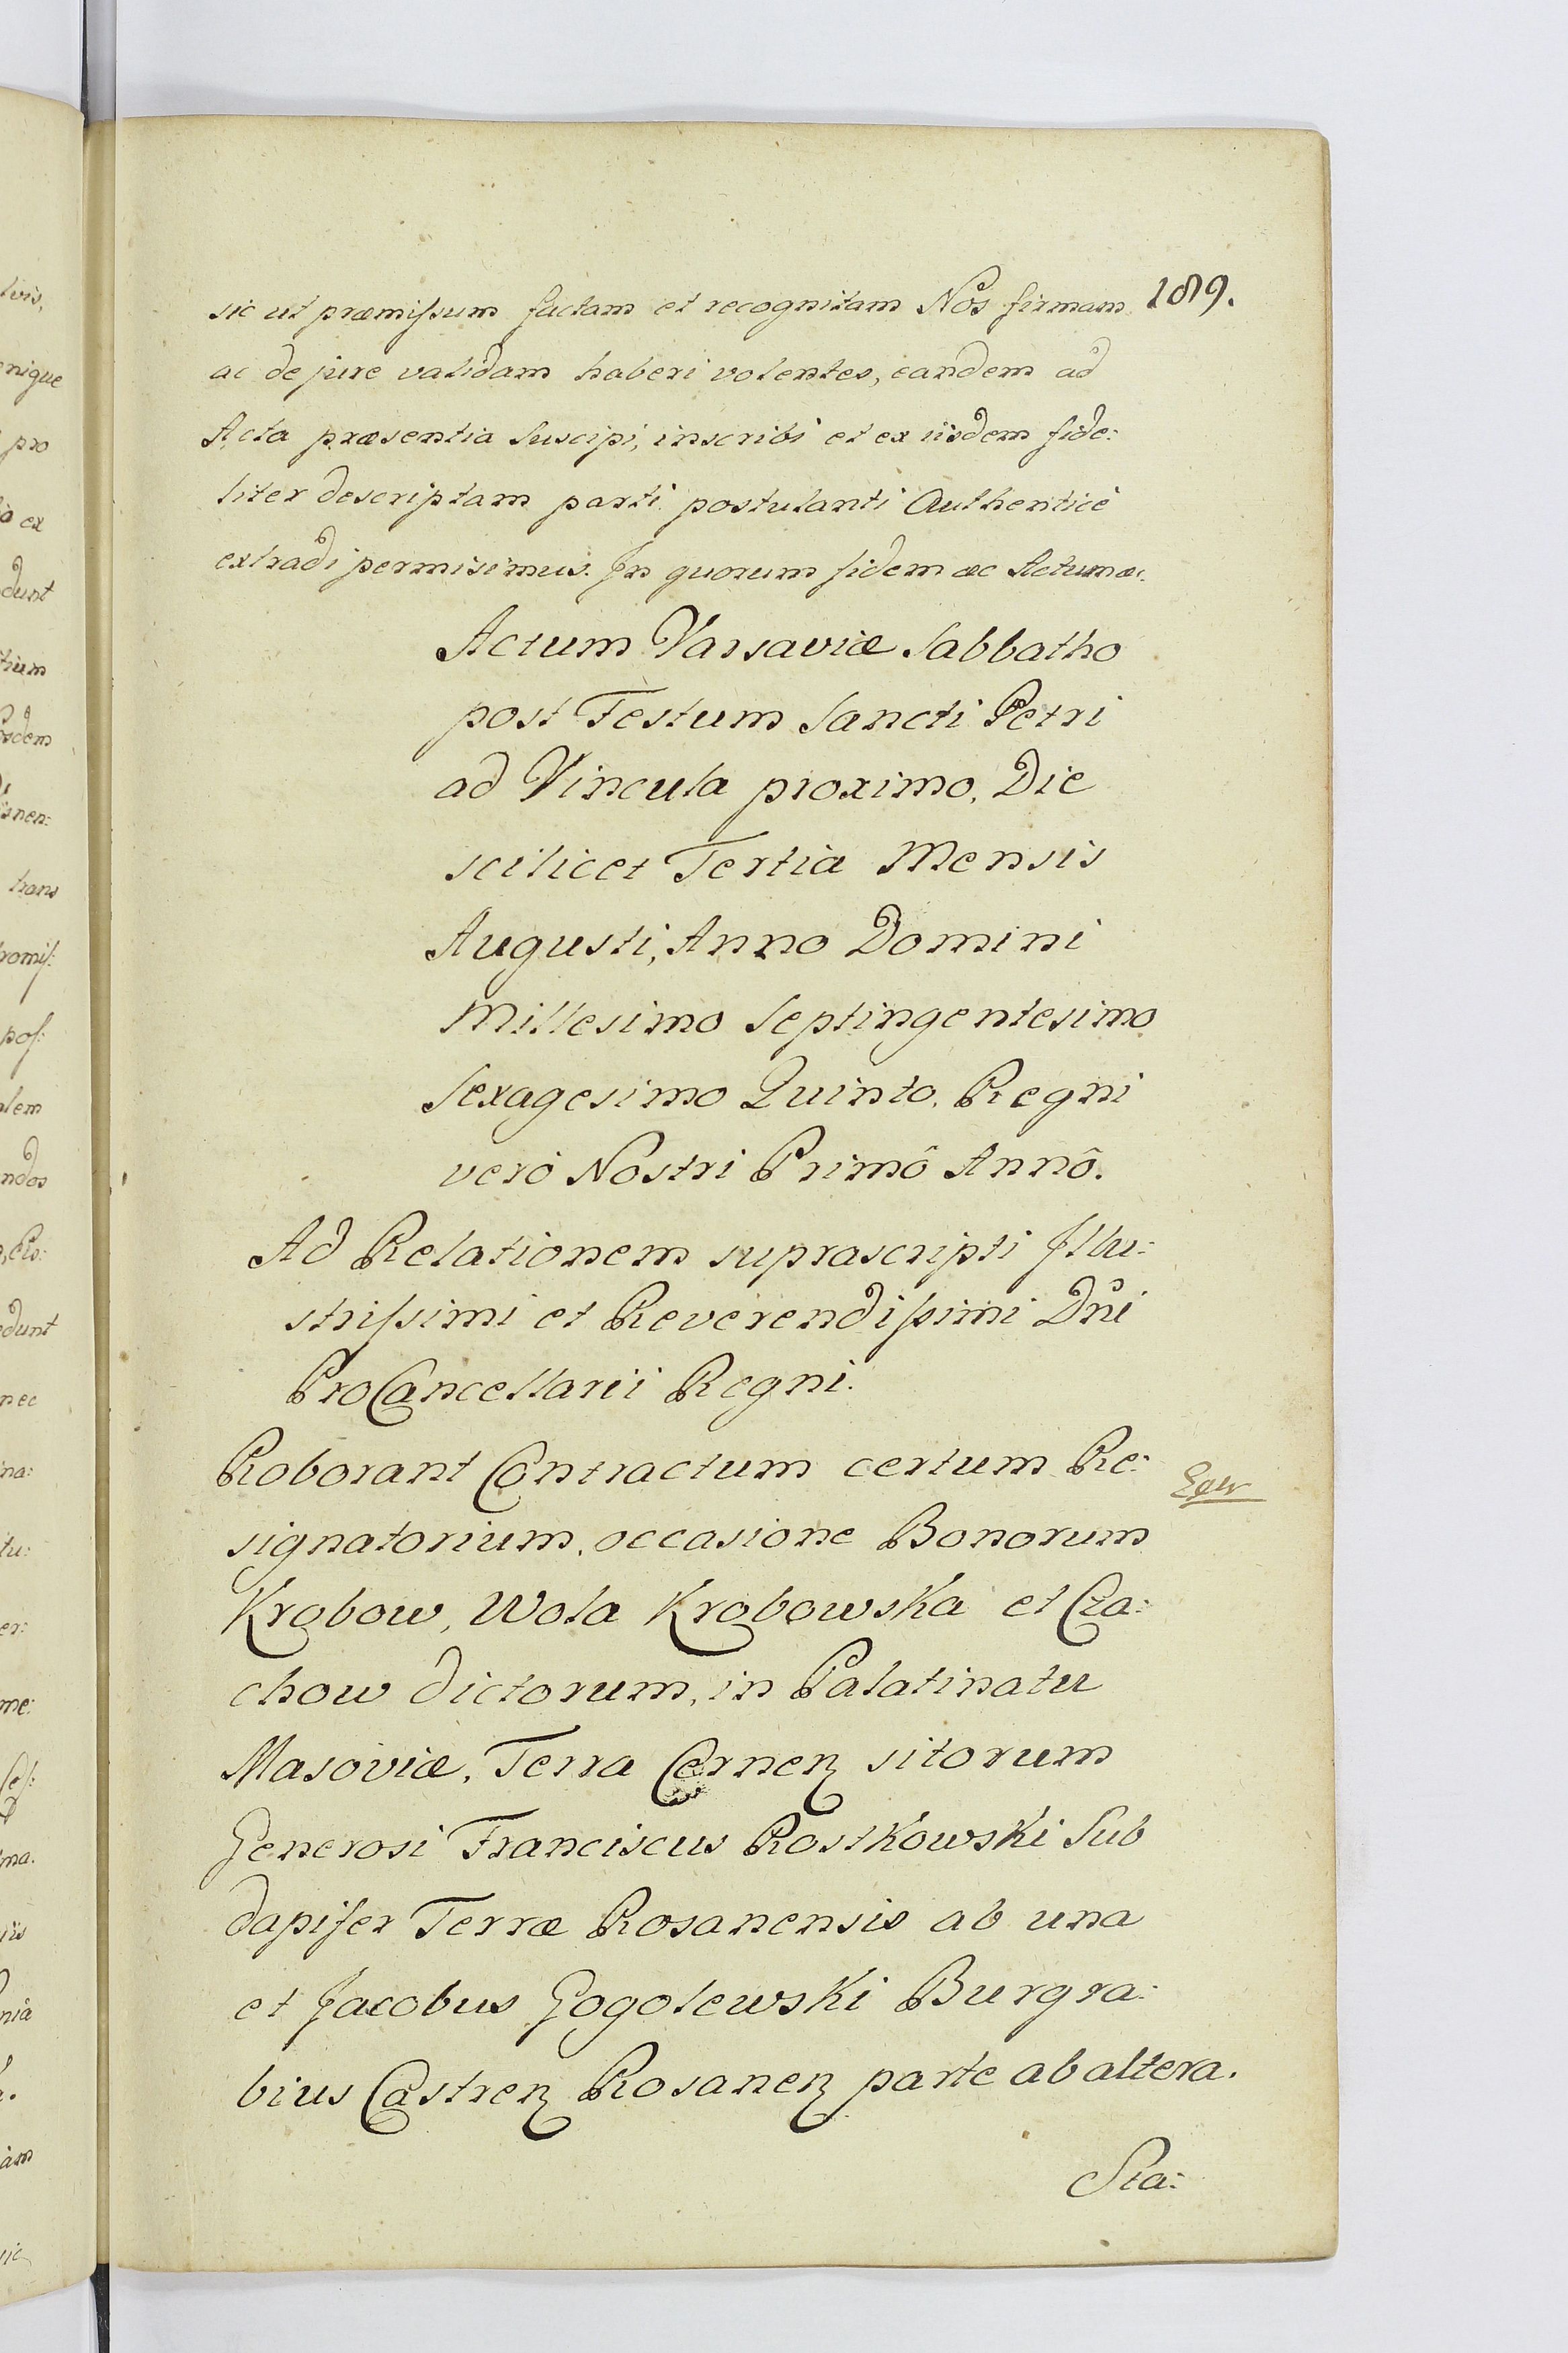 189.
sic ut præmissum factam et recognitam Nos firmam
ac de jure validam haberi volentes, eandem ad
Acta præsentia Suscipi, inscribi et ex iisdem fide:
liter descriptam parti postulanti Authenticè
extradi permisimus. In quorum fidem &c Actum &c.
Actum Varsaviæ Sabbatho
post Festum Sancti Petri
ad Vincula proximo, Die
scilicet Tertia Mensis
Augusti, Anno Domini
Millesimo Septingentesimo
Sexagesimo Quinto. Regni
verò Nostri Primô Annô.
Ad Relationem suprascripti Illu:
strissimi et Reverendissimi Dni
ProCancellarii Regni.
Roborant Contractum certum Re:
signatorium, occasione Bonorum
Krobow, Wola Krobowska et Cza:
chow dictorum, in Palatinatu
Masoviæ, Terra Cernen sitorum
Generosi Franciscus Rostkowski Sub
dapifer Terræ Rosanensis ab una
et Jacobus Gogolewski Burgra:
bius Castren Rosanen parte ab altera.
Sta: